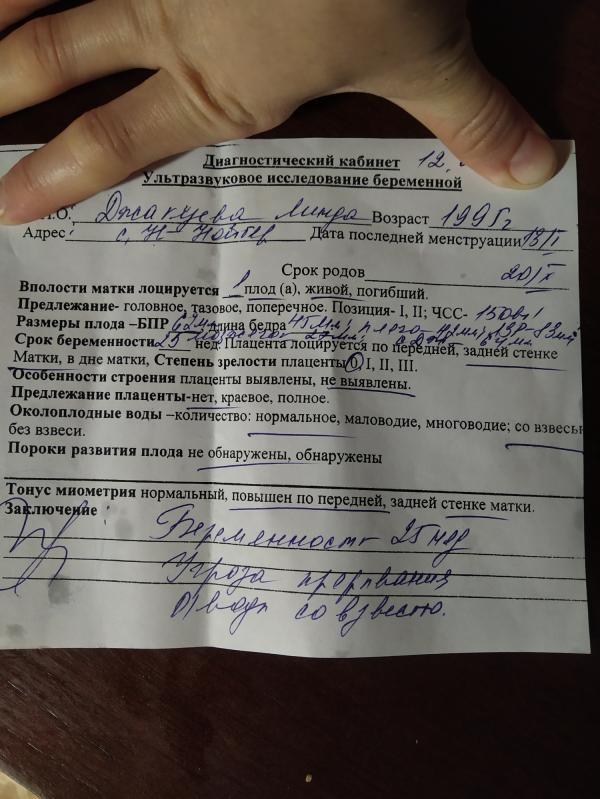 Диагностический кабинет 12.
Ультразвуковое исследование беременной
И.О. Джакуева Линда Возраст 1995г
Адрес: с. Дата последней менструации 13/I
Срок родов 20/X
Вполости матки лоцируется 1 плод (а), живой, погибший.
Предлежание- головное, тазовое, поперечное. Позиция- I, II; ЧСС- 150
Размеры плода –БПР 62мм длина бедра 45мм; плечо-42мм;
Срок беременности 25 нед. Плацента лоцируется по передней, задней стенке
Матки, в дне матки, Степень зрелости плаценты 0, I, II, III.
Особенности строения плаценты выявлены, не выявлены.
Предлежание плаценты-нет, краевое, полное.
Околоплодные воды –количество: нормальное, маловодие, многоводие; со взвесью
без взвеси.
Пороки развития плода не обнаружены, обнаружены
Тонус миометрия нормальный, повышен по передней, задней стенке матки.
Заключение
Беременность 25 нед
Угроза прерывания
О/воды со взвесью.